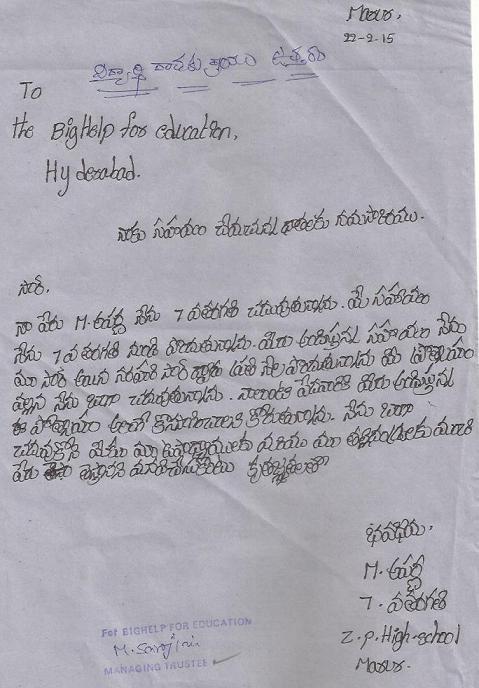 Mosur,
22-2-15
విద్యార్థి రాయు ఉత్తరం
To
the BigHelp for education,
Hyderabad.
నాకు సహాయం చేయుచున్న వారికి నమస్కారము.
సార్,
నా పేరు M. అపర్ణ నేను 7 వ తరగతి చదువుతున్నాను. మీ సహాయం
నేను 7 వ తరగతి నుండి పొందుతున్నాను. మీరు అందిస్తున్న సహాయం నేను
మా సార్ అయిన నరహరి సార్ ద్వారా ప్రతి నెల పొందుతున్నాను మీ ప్రోత్సాహం
వల్లన నేను బాగా చదువుతున్నాను. నాలాంటి పేదవారికి మీరు అందిస్తున్న
ఈ ప్రోత్సాహం ఇలాగే కొనసాగించాలని కోరుతున్నాను. నేను బాగా
చదువుకొని మీకు మా ఉపాధ్యాయులకు మరియు మా తల్లిదండ్రులకు మంచి
పేరు తెస్తానని మనవిచేసుకుంటు కృతజ్ఞతలతో
భవదీయ,
M. అపర్ణ
7. వ తరగతి
Z.p.High-school
Mosur.
For BIGHELP FOR EDUCATION
M. Sarojini
MANAGING TRUSTEE